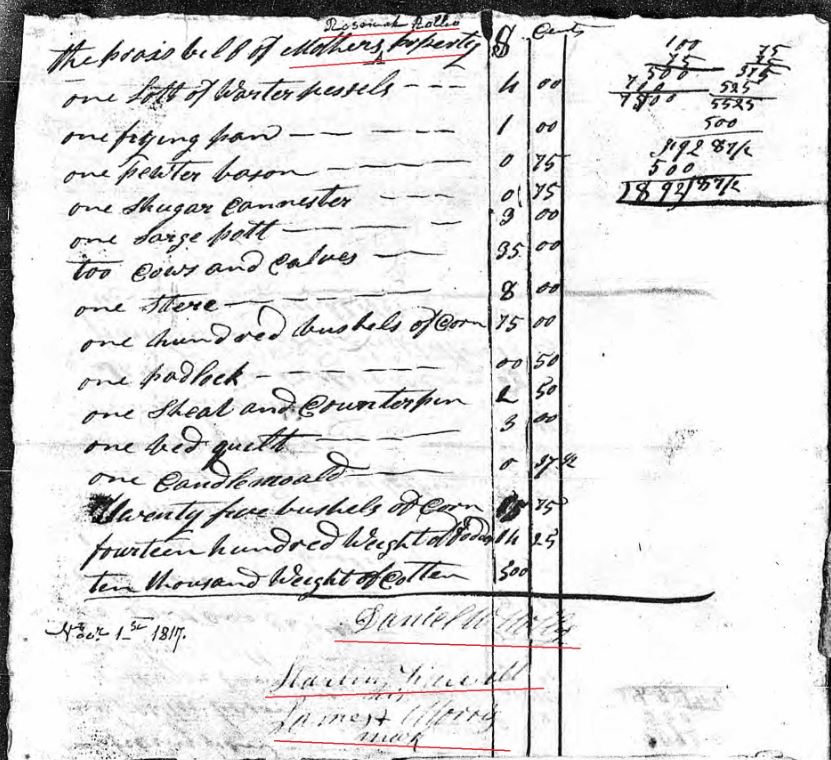 Rosannah Rollin
the prais bill of Mothers property $ Cents
one Lott of Warter vessels - - - 4 00
one frying pan — — — — 1 00
one pewter bason — — — 0 75
one Shugar Cannester — — 0 75
one Large pott — — — 3 00
too Cows and Calves — — 35 00
one Stere — — — — — 8 00
one hundred bushels of Corn 75 00
one padlock - — — — — 00 50
one Sheat and Counterpin 2 50
one bed quilt — — — 3 00
one Candlemoald — — 0 37 1/2
Twenty five bushels of Corn 75
fourteen hundred Weight of Fodder 14 25
ten thousand Weight of Cotten 500
Novr 1st 1817.
Daniel W
his
James + Morris
mark
100 75
75 75
500 375
700 525
7500 5525
500
892 87 1/2
500
1892 87 1/2